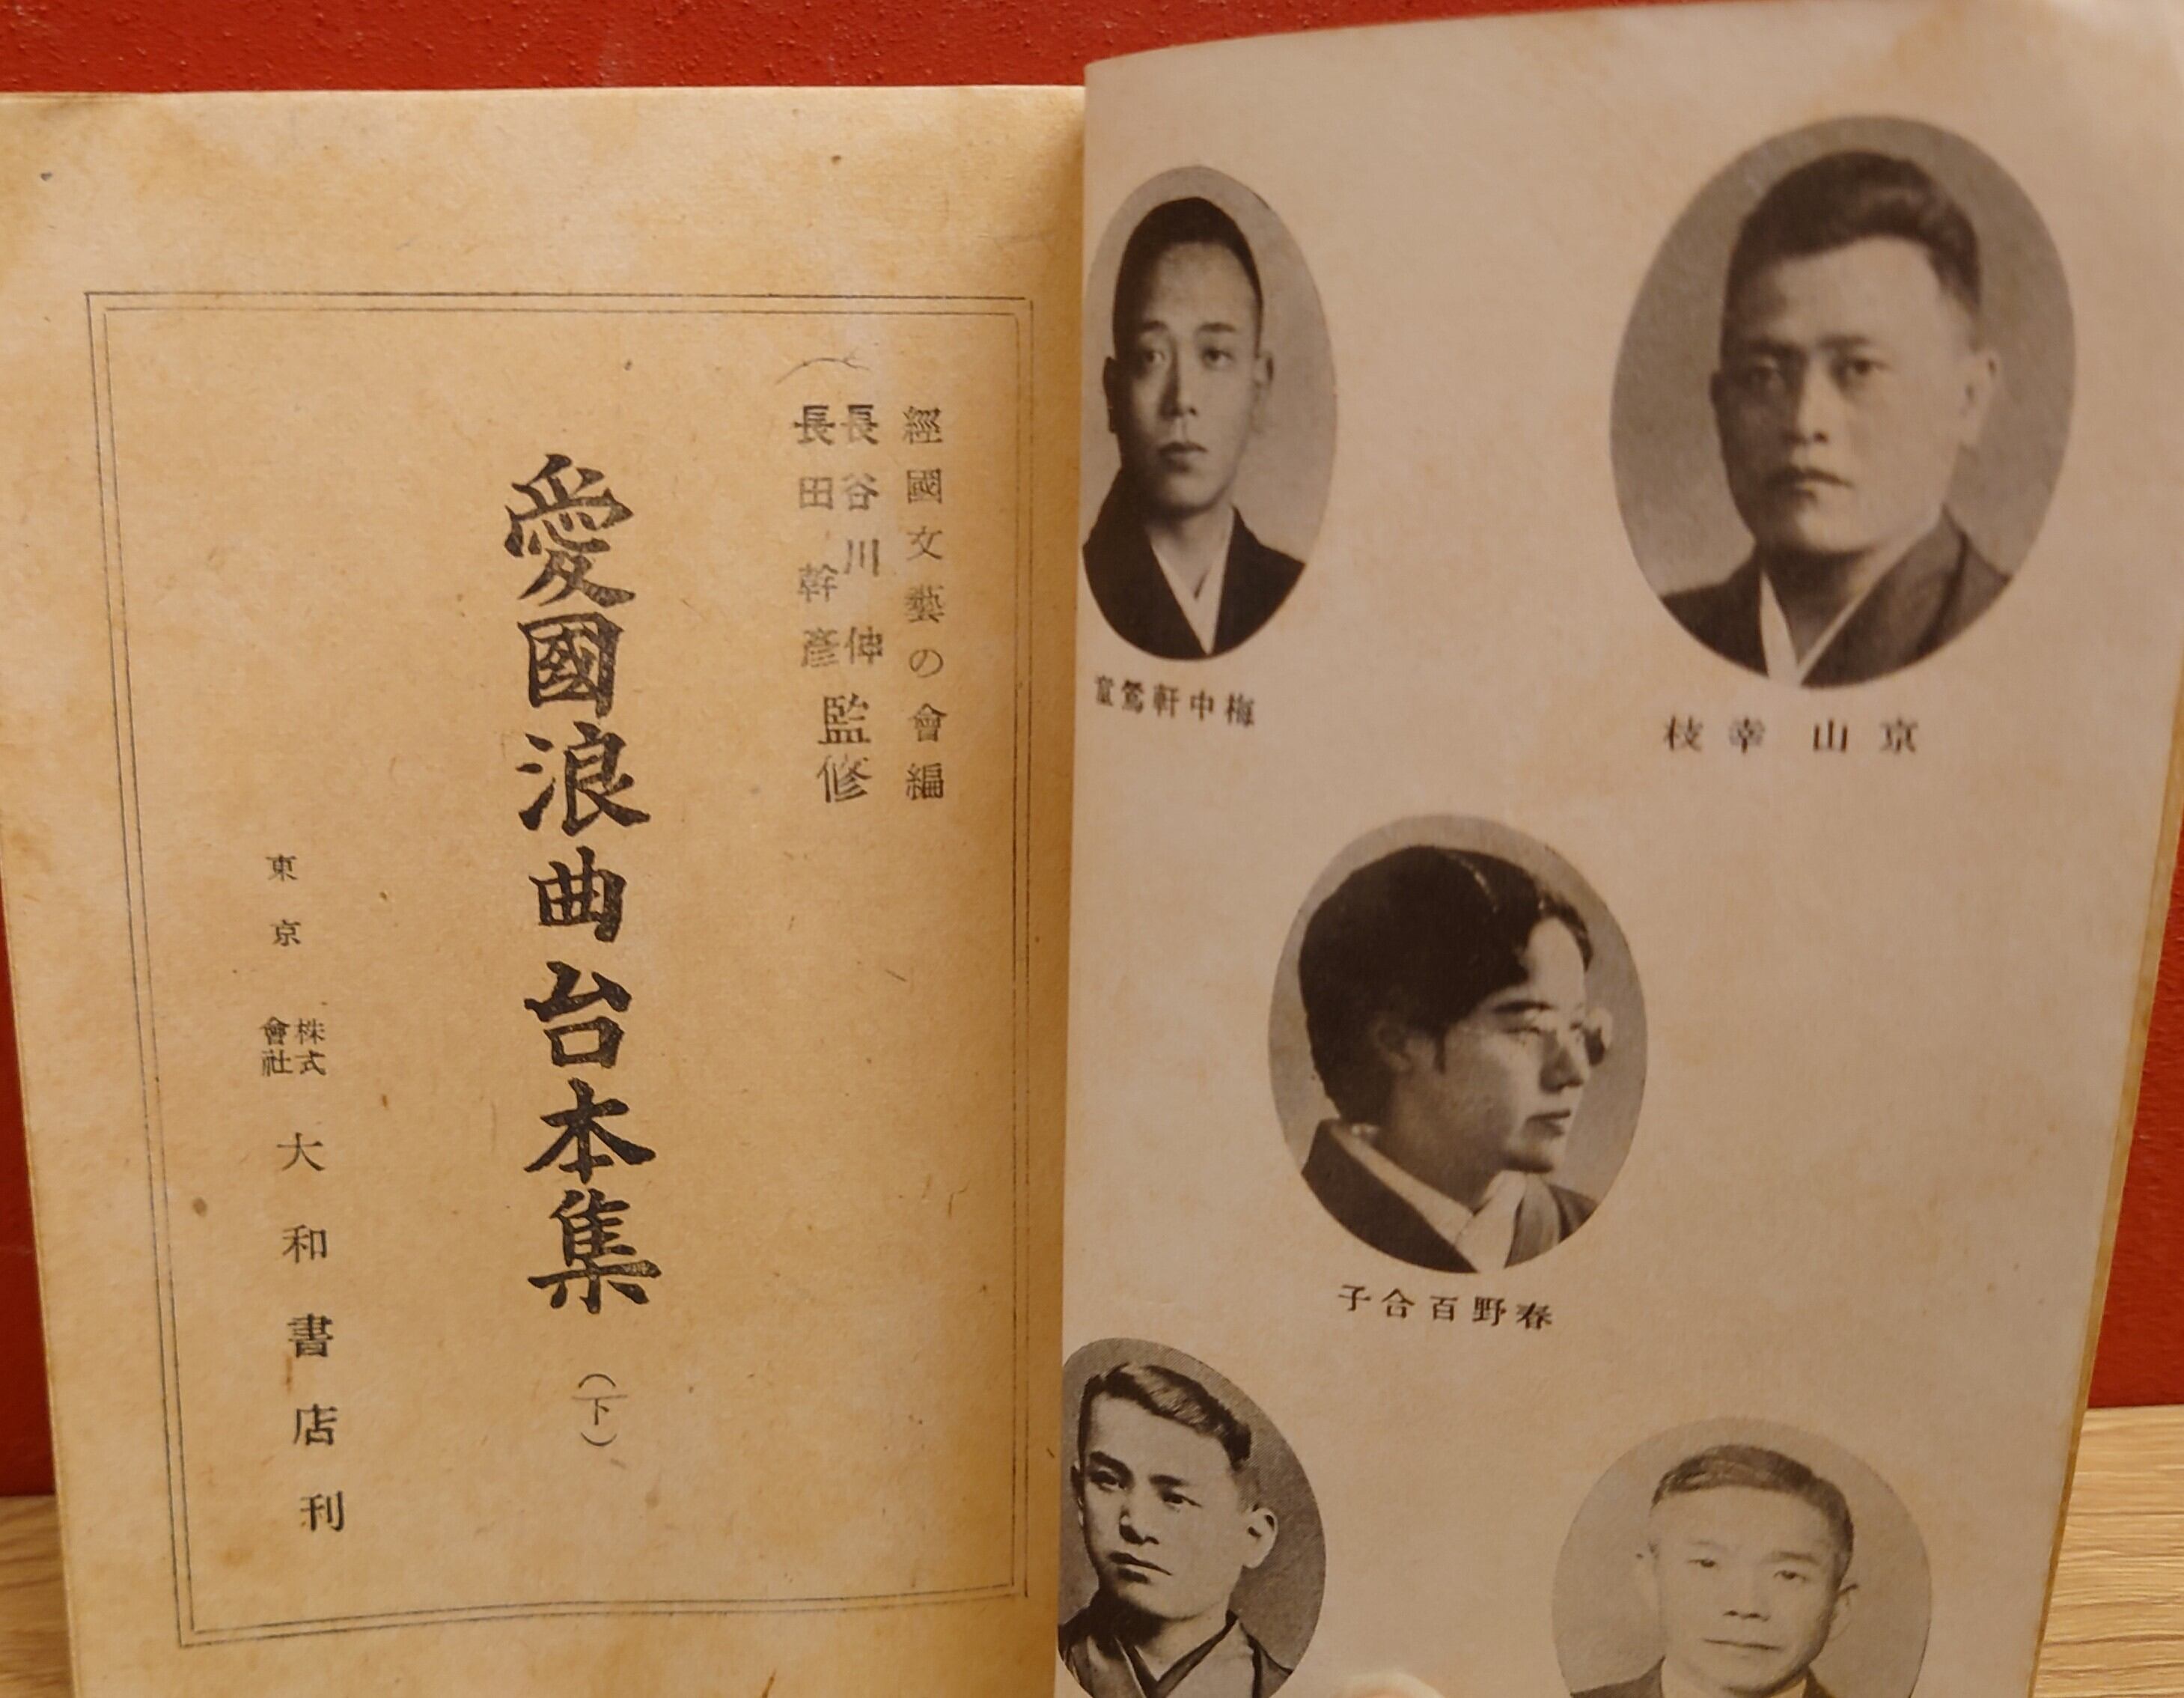 經國文藝の會編
長谷川伸
長田幹彥
監修
愛國浪曲台本集
(下)
東京
株式
會社
大和書店刊
枝幸山京
童鶯軒中梅
子合百野春